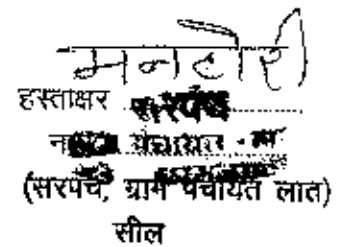 मनटोरी
हस्ताक्षर सरपंच
ना
(सरपंच, ग्राम पंचायत लात)
सील